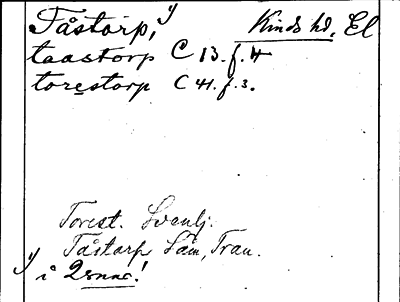 Tåstorp, y Kinds hd. El
taastorp C 13. f. 4
torestorp C 41. f. 3.
Torest. Svenlj.
Tåstorp Säm, Tran.
y i 2 !